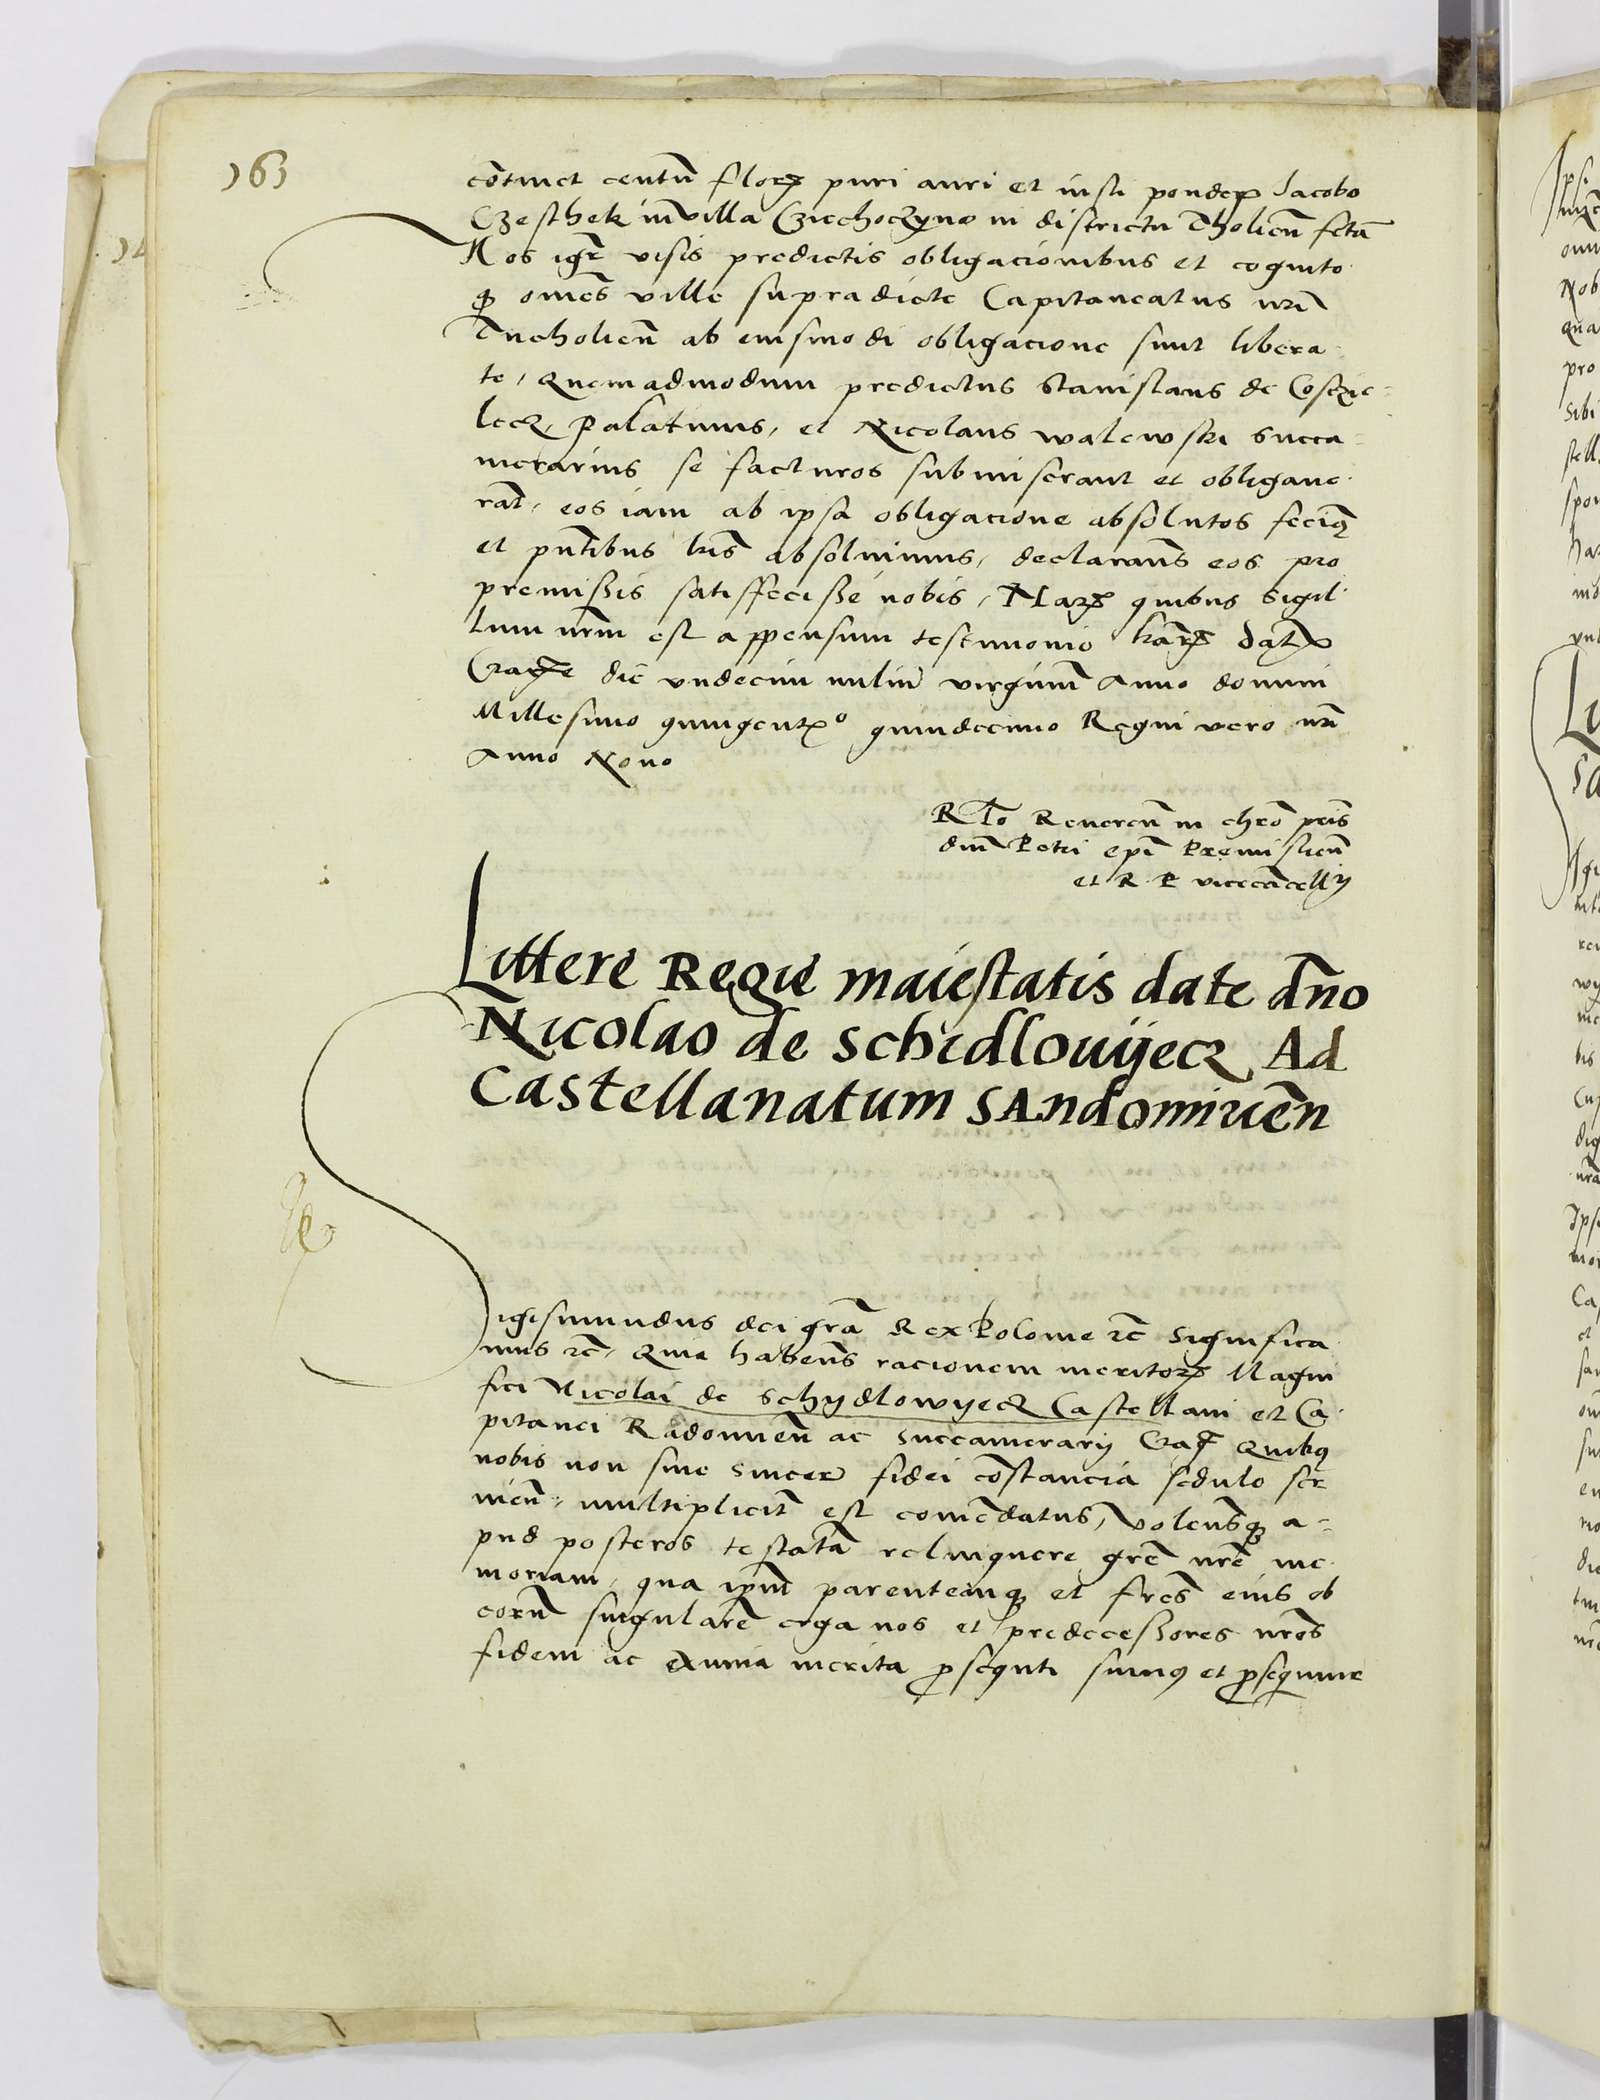 163
cōtinet centū florꝝ puri auri et iusti ponderꝭ Jacobo
Czesthek in villa Czicchoczyno in districtu Tholicen̄ fctā
Nos igr̄ visis predictis obligacionibus et cognito
ꝙ om̄es ville supradicte Capitaneatus nr̄i
Tucholien̄ ab eiusmodi obligacione sunt libera
te, quemadmodum predictus Stanislaus de Cosczie-
lecz, Palatinus, et Nicolaus walewski succa-
merarius se facturos submiserant et obligaue
rāt, eos iam ab ipsa obligacione absolutos feciꝰ
et pn̄tibus lr̄is absoluimus, declaran̄s eos pro
premissis satisfecisse nobis, Harꝝ quibus sigil
lum nr̄m est appensum testimonio lr̄arꝝ Datꝭ
Cracoe die vndecim miliū virginū Anno domini
Millesimo quingentꝭo quindecimo Regni vero nr̄i
Anno Nono
R To Reueren̄ in chr̄o pr̄is
dn̄i Petri ep̄i Premislien̄
et R P vicecācellȳ
Littere Regie maiestatis date dn̄o
Nicolao de Schidlouijecz Ad
Castellanatum SAndomiriēn
Sigismundus dei grā Rex Polonie ꝛc̄ Significa
mus ꝛc̄, Quia haben̄s racionem meritorꝝ Magni
fici Nicolai de Schydlowyecz Castellani et Ca
pitanei Radomien̄ ac succamerarij Crac̄ quibꝰ
nobis non sine sincerꝭ fidei cōstancia sedulo ser
uien̄, multiplicit̄ est com̄edatus, volensqꝫ a-
pud posteros testatā relinquere grē nr̄e me
moriam, qua ip̄m parentemqꝫ et fr̄es eius ob
eorū singularē erga nos et predecessores nr̄os
fidem ac eximia merita ꝓsequti sumꝰ et ꝓsequimr